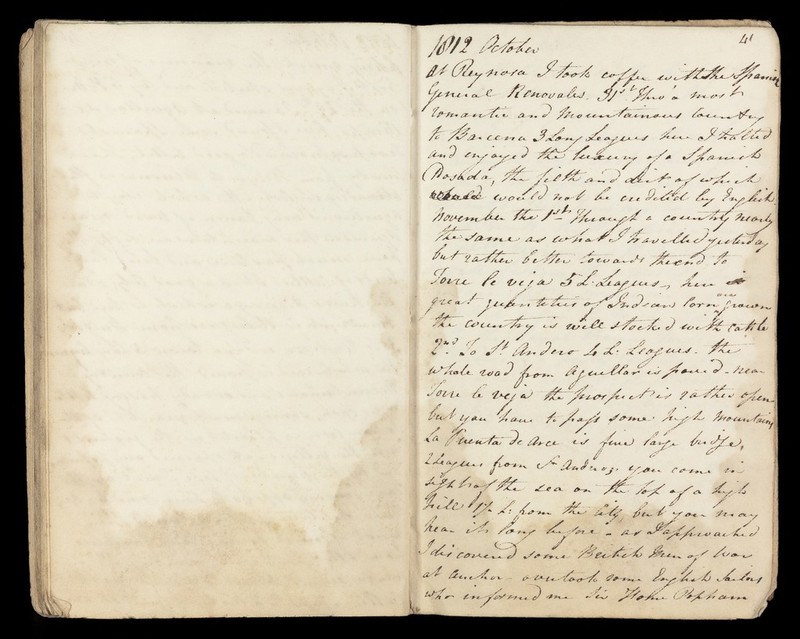 1812 October
41
At Reynosa I took coffee with the Spanish
General Renovales. 31st. Thro' a most
romantic and Mountainous Country
to Barcena 3 Long Leagues here I halted
and enjoyed the luxury of a Spanish
Posada, the filth and dirt of which
would not be credited by English.
November the 1st. Through a country nearly
the same as what I travelled yesterday
but rather better towards the end to
Torre le vega 5 L. Leagues, here
great quantities of Indian Corn are grown
the country is well stocked with cattle
2nd. To St. Andero 4 L. Leagues. the
whole road from Aguellar is paved - near
Torre le veja the prospect is rather open
but you have to pass some high mountains
La Puenta de Arce is fine large bridge,
2 Leagues from St. Andero, you come in
sight of the sea on the top of a high
hill 1½ L: from the City, but you may
hear it long before - as I approached
I discovered some British Men of War
at anchor - overtook some English Sailors
who informed me Sir Home Popham